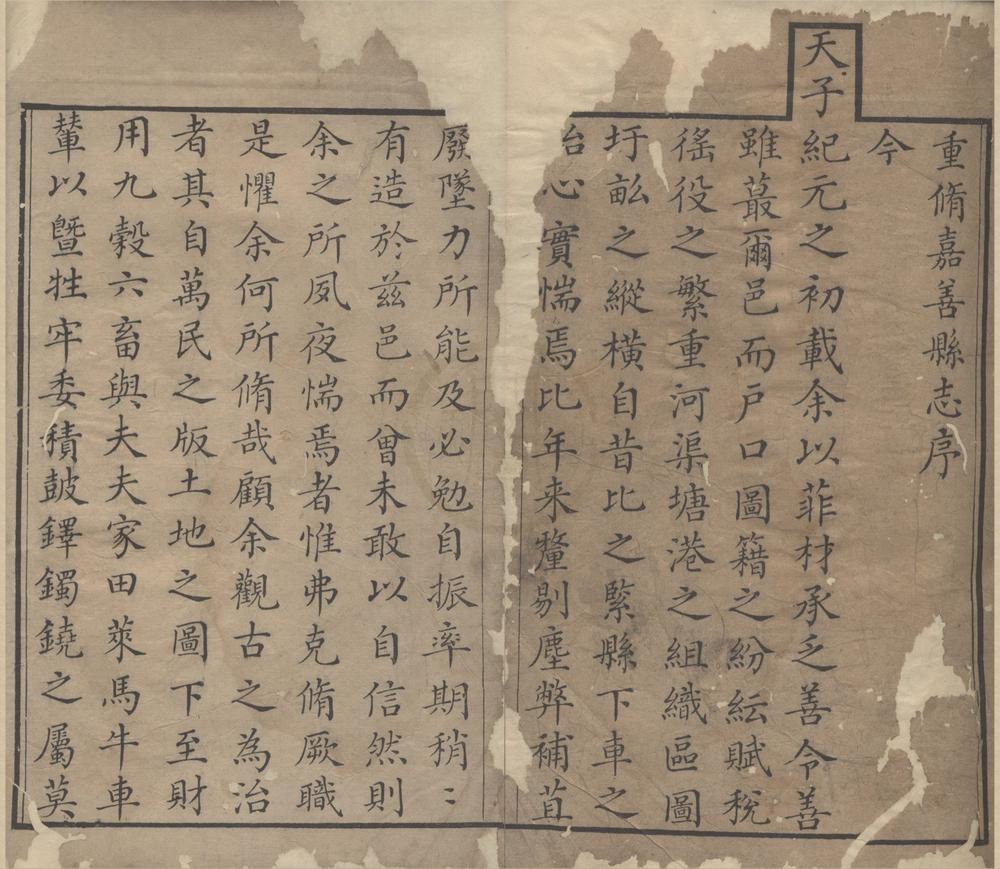 重脩嘉善縣志序
今
天子紀元之初載余以菲材承乏善令善
雖蕞爾邑而戶口圖籍之紛紜賦稅
徭役之繁重河渠塘港之組織區圖
圩畝之縱橫自昔比之緊縣下車之
始心實惴焉比年来釐剔塵弊補苴
廢墜力所能及必勉自振率期稍〻
有造於兹邑而曾未敢以自信然則
余之所夙夜惴焉者惟弗克脩厥職
是懼余何所脩哉顧余觀古之為治
者其自萬民之版土地之圖下至財
用九穀六畜與夫夫家田萊馬牛車
輦以暨牲牢委積鼓鐸鐲鐃之屬莫